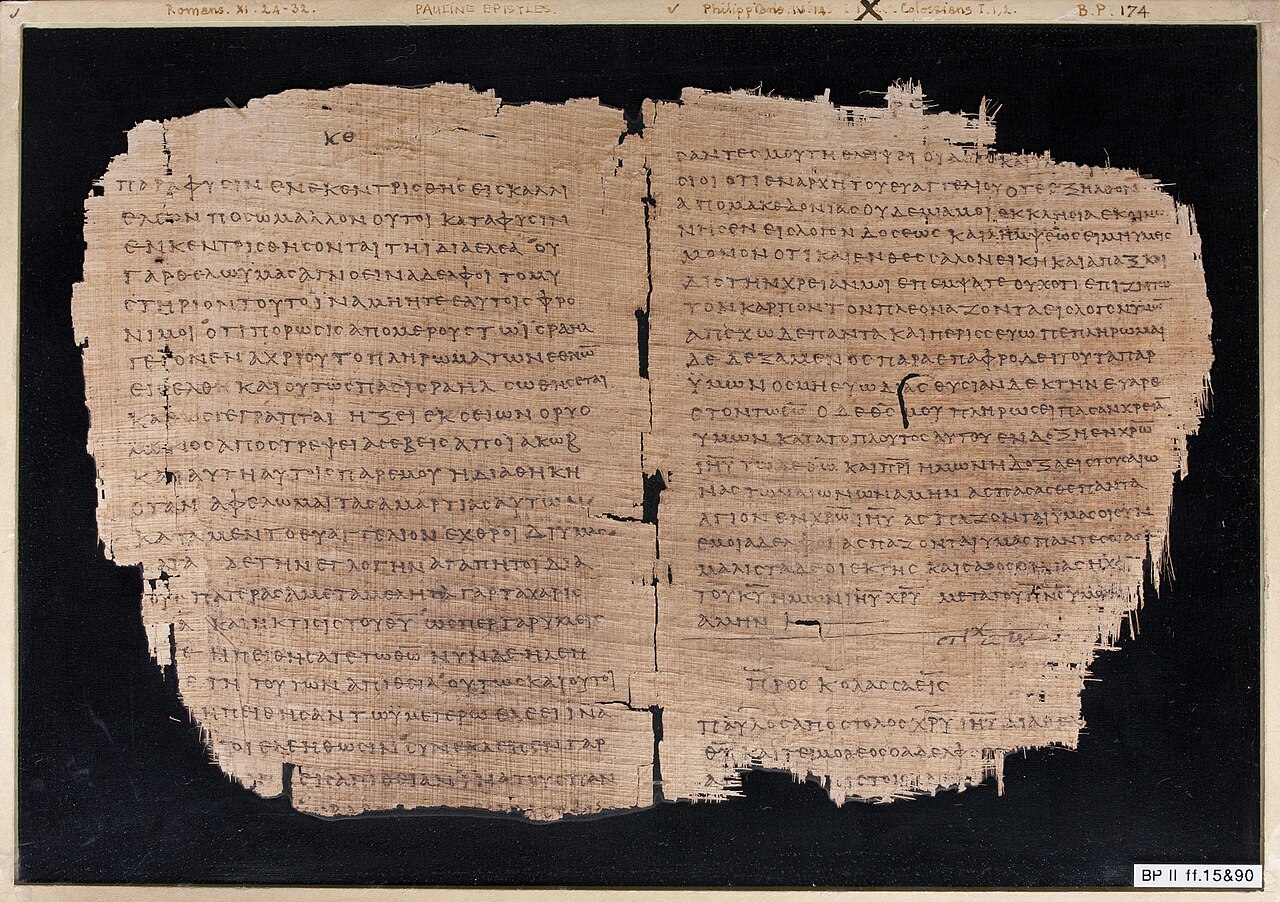 Romans. XI. 24-32.
PAULINE EPISTLES.
Philippians. IV. 14
Colossians I. 1, 2.
B.P. 174
ΚΕ
ΠΑΡΑΦΥϹΙΝ ΕΝΕΚΕΝΤΡΙϹΘΗϹ ΕΙϹ ΚΑΛΛΙ
ΕΛΕΟΝ ΠΟϹΩ ΜΑΛΛΟΝ ΟΥΤΟΙ ΚΑΤΑΦΥϹΙΝ
ΕΝΚΕΝΤΡΙϹΘΗϹΟΝΤΑΙ ΤΗΙ ΙΔΙΑ ΕΛΕΑ ΟΥ
ΓΑΡ ΘΕΛΩ ΥΜΑϹ ΑΓΝΟΕΙΝ ΑΔΕΛΦΟΙ ΤΟ ΜΥ
ϹΤΗΡΙΟΝ ΤΟΥΤΟ ΙΝΑ ΜΗ ΗΤΕ ΕΑΥΤΟΙϹ ΦΡΟ
ΝΙΜΟΙ ΟΤΙ ΠΟΡΩϹΙϹ ΑΠΟ ΜΕΡΟΥϹ ΤΩ ΙϹΡΑΗΛ
ΓΕΓΟΝΕΝ ΑΧΡΙ ΟΥ ΤΟ ΠΛΗΡΩΜΑ ΤΩΝ ΕΘΝΩ̅
ΕΙϹΕΛΘΗ ΚΑΙ ΟΥΤΩϹ ΠΑϹ ΙϹΡΑΗΛ ϹΩΘΗϹΕΤΑΙ
ΚΑΘΩϹ ΓΕΓΡΑΠΤΑΙ ΗΞΕΙ ΕΚ ϹΕΙΩΝ Ο ΡΥΟ
ΜΕΝΟϹ ΑΠΟϹΤΡΕΨΕΙ ΑϹΕΒΕΙϹ ΑΠΟ ΙΑΚΩΒ
ΚΑΙ ΑΥΤΗ ΑΥΤΟΙϹ ΠΑΡ ΕΜΟΥ Η ΔΙΑΘΗΚΗ
ΟΤΑΝ ΑΦΕΛΩΜΑΙ ΤΑϹ ΑΜΑΡΤΙΑϹ ΑΥΤΩΝ
ΚΑΤΑ ΜΕΝ ΤΟ ΕΥΑΓΓΕΛΙΟΝ ΕΧΘΡΟΙ ΔΙ ΥΜΑϹ
ΚΑΤΑ ΔΕ ΤΗΝ ΕΓΛΟΓΗΝ ΑΓΑΠΗΤΟΙ ΔΙΑ
ΤΟΥϹ ΠΑΤΕΡΑϹ ΑΜΕΤΑΜΕΛΗΤΑ ΓΑΡ ΤΑ ΧΑΡΙϹ
ΚΑΙ Η ΚΤΙϹΙϹ ΤΟΥ Θ̅Υ̅ ΩϹΠΕΡ ΓΑΡ ΥΜΕΙϹ
ΗΠΕΙΘΗϹΑΤΕ ΤΩ ΘΩ ΝΥΝ ΔΕ ΗΛΕΗ
ΤΗ ΤΟΥΤΩΝ ΑΠΙΘΕΙΑ ΟΥΤΩϹ ΚΑΙ ΟΥΤΟΙ
ΗΠΕΙΘΗϹΑΝ ΤΩ ΥΜΕΤΕΡΩ ΕΛΕΕΙ ΙΝΑ
ΕΛΕΗΘΩϹΙΝ ϹΥΝΕΚΛΕΙϹΕΝ ΓΑΡ
ΕΙϹ ΑΠΙΘΕΙΑΝ ΙΝΑ ΤΟΥϹ ΠΑΝ
ϹΑΝΤΕϹ ΜΟΥ ΤΗ ΘΛΕΙΨΕΙ
ϹΙΟΙ ΟΤΙ ΕΝ ΑΡΧΗ ΤΟΥ ΕΥΑΓΓΕΛΙΟΥ ΟΤΕ ΕΞΗΛΘΟΝ
ΑΠΟ ΜΑΚΕΔΟΝΙΑϹ ΟΥΔΕΜΙΑ ΜΟΙ ΕΚΚΛΗϹΙΑ ΕΚΟΙΝΩ
ΝΗϹΕΝ ΕΙϹ ΛΟΓΟΝ ΔΟϹΕΩϹ ΚΑΙ ΛΗΜΨΕΩϹ ΕΙ ΜΗ ΥΜΕΙϹ
ΜΟΝΟΝ ΟΤΙ ΚΑΙ ΕΝ ΘΕϹϹΑΛΟΝΕΙΚΗ ΚΑΙ ΑΠΑΞ ΚΑΙ
ΔΙϹ ΤΗΝ ΧΡΕΙΑΝ ΜΟΙ ΕΠΕΜΨΑΤΕ ΟΥΧ ΟΤΙ ΕΠΙΖΗΤΩ
ΤΟΝ ΚΑΡΠΟΝ ΤΟΝ ΠΛΕΟΝΑΖΟΝΤΑ ΕΙϹ ΛΟΓΟΝ ΥΜΩ̅
ΑΠΕΧΩ ΔΕ ΠΑΝΤΑ ΚΑΙ ΠΕΡΙϹϹΕΥΩ ΠΕΠΛΗΡΩΜΑΙ
ΔΕ ΔΕΞΑΜΕΝΟϹ ΠΑΡΑ ΕΠΑΦΡΟΔΕΙΤΟΥ ΤΑ ΠΑΡ
ΥΜΩΝ ΟϹΜΗ ΕΥΩΔΙΑϹ ΘΥϹΙΑΝ ΔΕΚΤΗΝ ΕΥΑΡΕ
ϹΤΟΝ ΤΩ Θ̅Ω̅ Ο ΔΕ Θ̅Ϲ̅ ΜΟΥ ΠΛΗΡΩϹΕΙ ΠΑϹΑΝ ΧΡΕΙΑ̅
ΥΜΩΝ ΚΑΤΑ ΤΟ ΠΛΟΥΤΟϹ ΑΥΤΟΥ ΕΝ ΔΟΞΗ ΕΝ ΧΡΩ
Ι̅Η̅Υ̅ ΤΩ ΔΕ Θ̅Ω̅ ΚΑΙ Π̅Ρ̅Ι̅ ΗΜΩΝ Η ΔΟΞΑ ΕΙϹ ΤΟΥϹ ΑΙΩ
ΝΑϹ ΤΩΝ ΑΙΩΝΩΝ ΑΜΗΝ ΑϹΠΑϹΑϹΘΕ ΠΑΝΤΑ
ΑΓΙΟΝ ΕΝ Χ̅Ρ̅Ω̅ Ι̅Η̅Υ̅ ΑϹΠΑΖΟΝΤΑΙ ΥΜΑϹ ΟΙ ϹΥΝ
ΕΜΟΙ ΑΔΕΛΦΟΙ ΑϹΠΑΖΟΝΤΑΙ ΥΜΑϹ ΠΑΝΤΕϹ ΟΙ
ΜΑΛΙϹΤΑ ΔΕ ΟΙ ΕΚ ΤΗϹ ΚΑΙϹΑΡΟϹ ΟΙΚΙΑϹ Η ΧΑΡΙϹ
ΤΟΥ Κ̅Υ̅ ΗΜΩΝ Ι̅Η̅Υ̅ Χ̅Ρ̅Υ̅ ΜΕΤΑ ΤΟΥ Π̅Ν̅Ϲ̅ ΥΜΩΝ
ΑΜΗΝ
ΠΡΟϹ ΚΟΛΑϹϹΑΕΙϹ
ΠΑΥΛΟϹ ΑΠΟϹΤΟΛΟϹ Χ̅Ρ̅Υ̅ Ι̅Η̅Υ̅ ΔΙΑ
Θ̅Υ̅ ΚΑΙ ΤΕΙΜΟΘΕΟϹ Ο ΑΔΕΛΦΟϹ
BP II ff.15&90